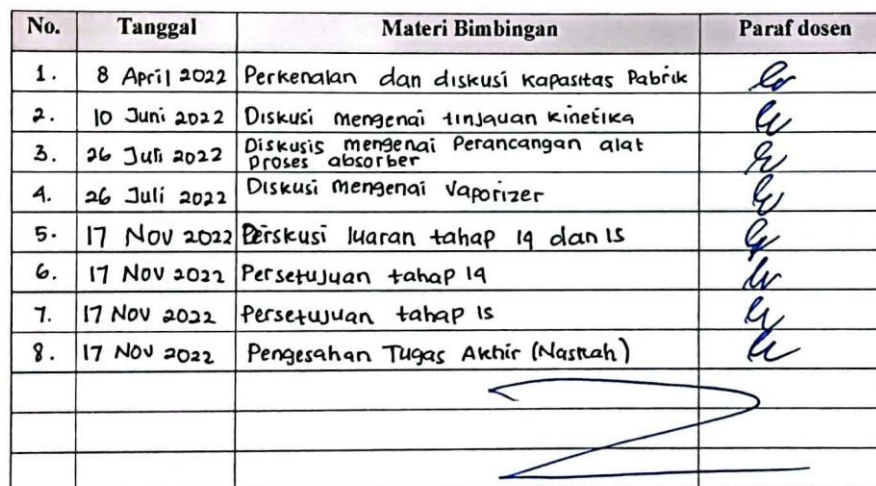 No. Tanggal Materi Bimbingan Paraf dosen
1. 8 April 2022 Perkenalan dan diskusi Kapasitas Pabrik
2. 10 Juni 2022 Diskusi mengenai tinjauan kinetika
3. 26 Juli 2022 Diskusis mengenai Perancangan alat
proses absorber
4. 26 Juli 2022 Diskusi mengenai Vaporizer
5. 17 Nov 2022 luaran tahap 14 dan 15
6. 17 Nov 2022 Persetujuan tahap 14
7. 17 Nov 2022 Persetujuan tahap 15
8. 17 Nov 2022 Pengesahan Tugas Akhir (Naskah)